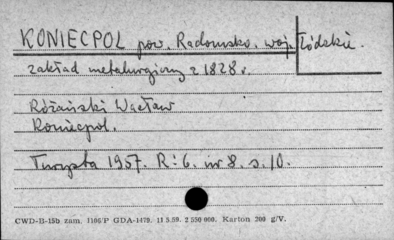 KONIECPOL pow. Radomsko. woj. Łódzkie.
zakład metalurgiczny z 1828 r.
Różański Wacław
Koniecpol.
Turysta 1957. R: 6. nr 8. s. 10.
CWD-B-15b zam. 1106/P GDA-1479. 11 5.59. 2 550 000. Karton 200 g/V.